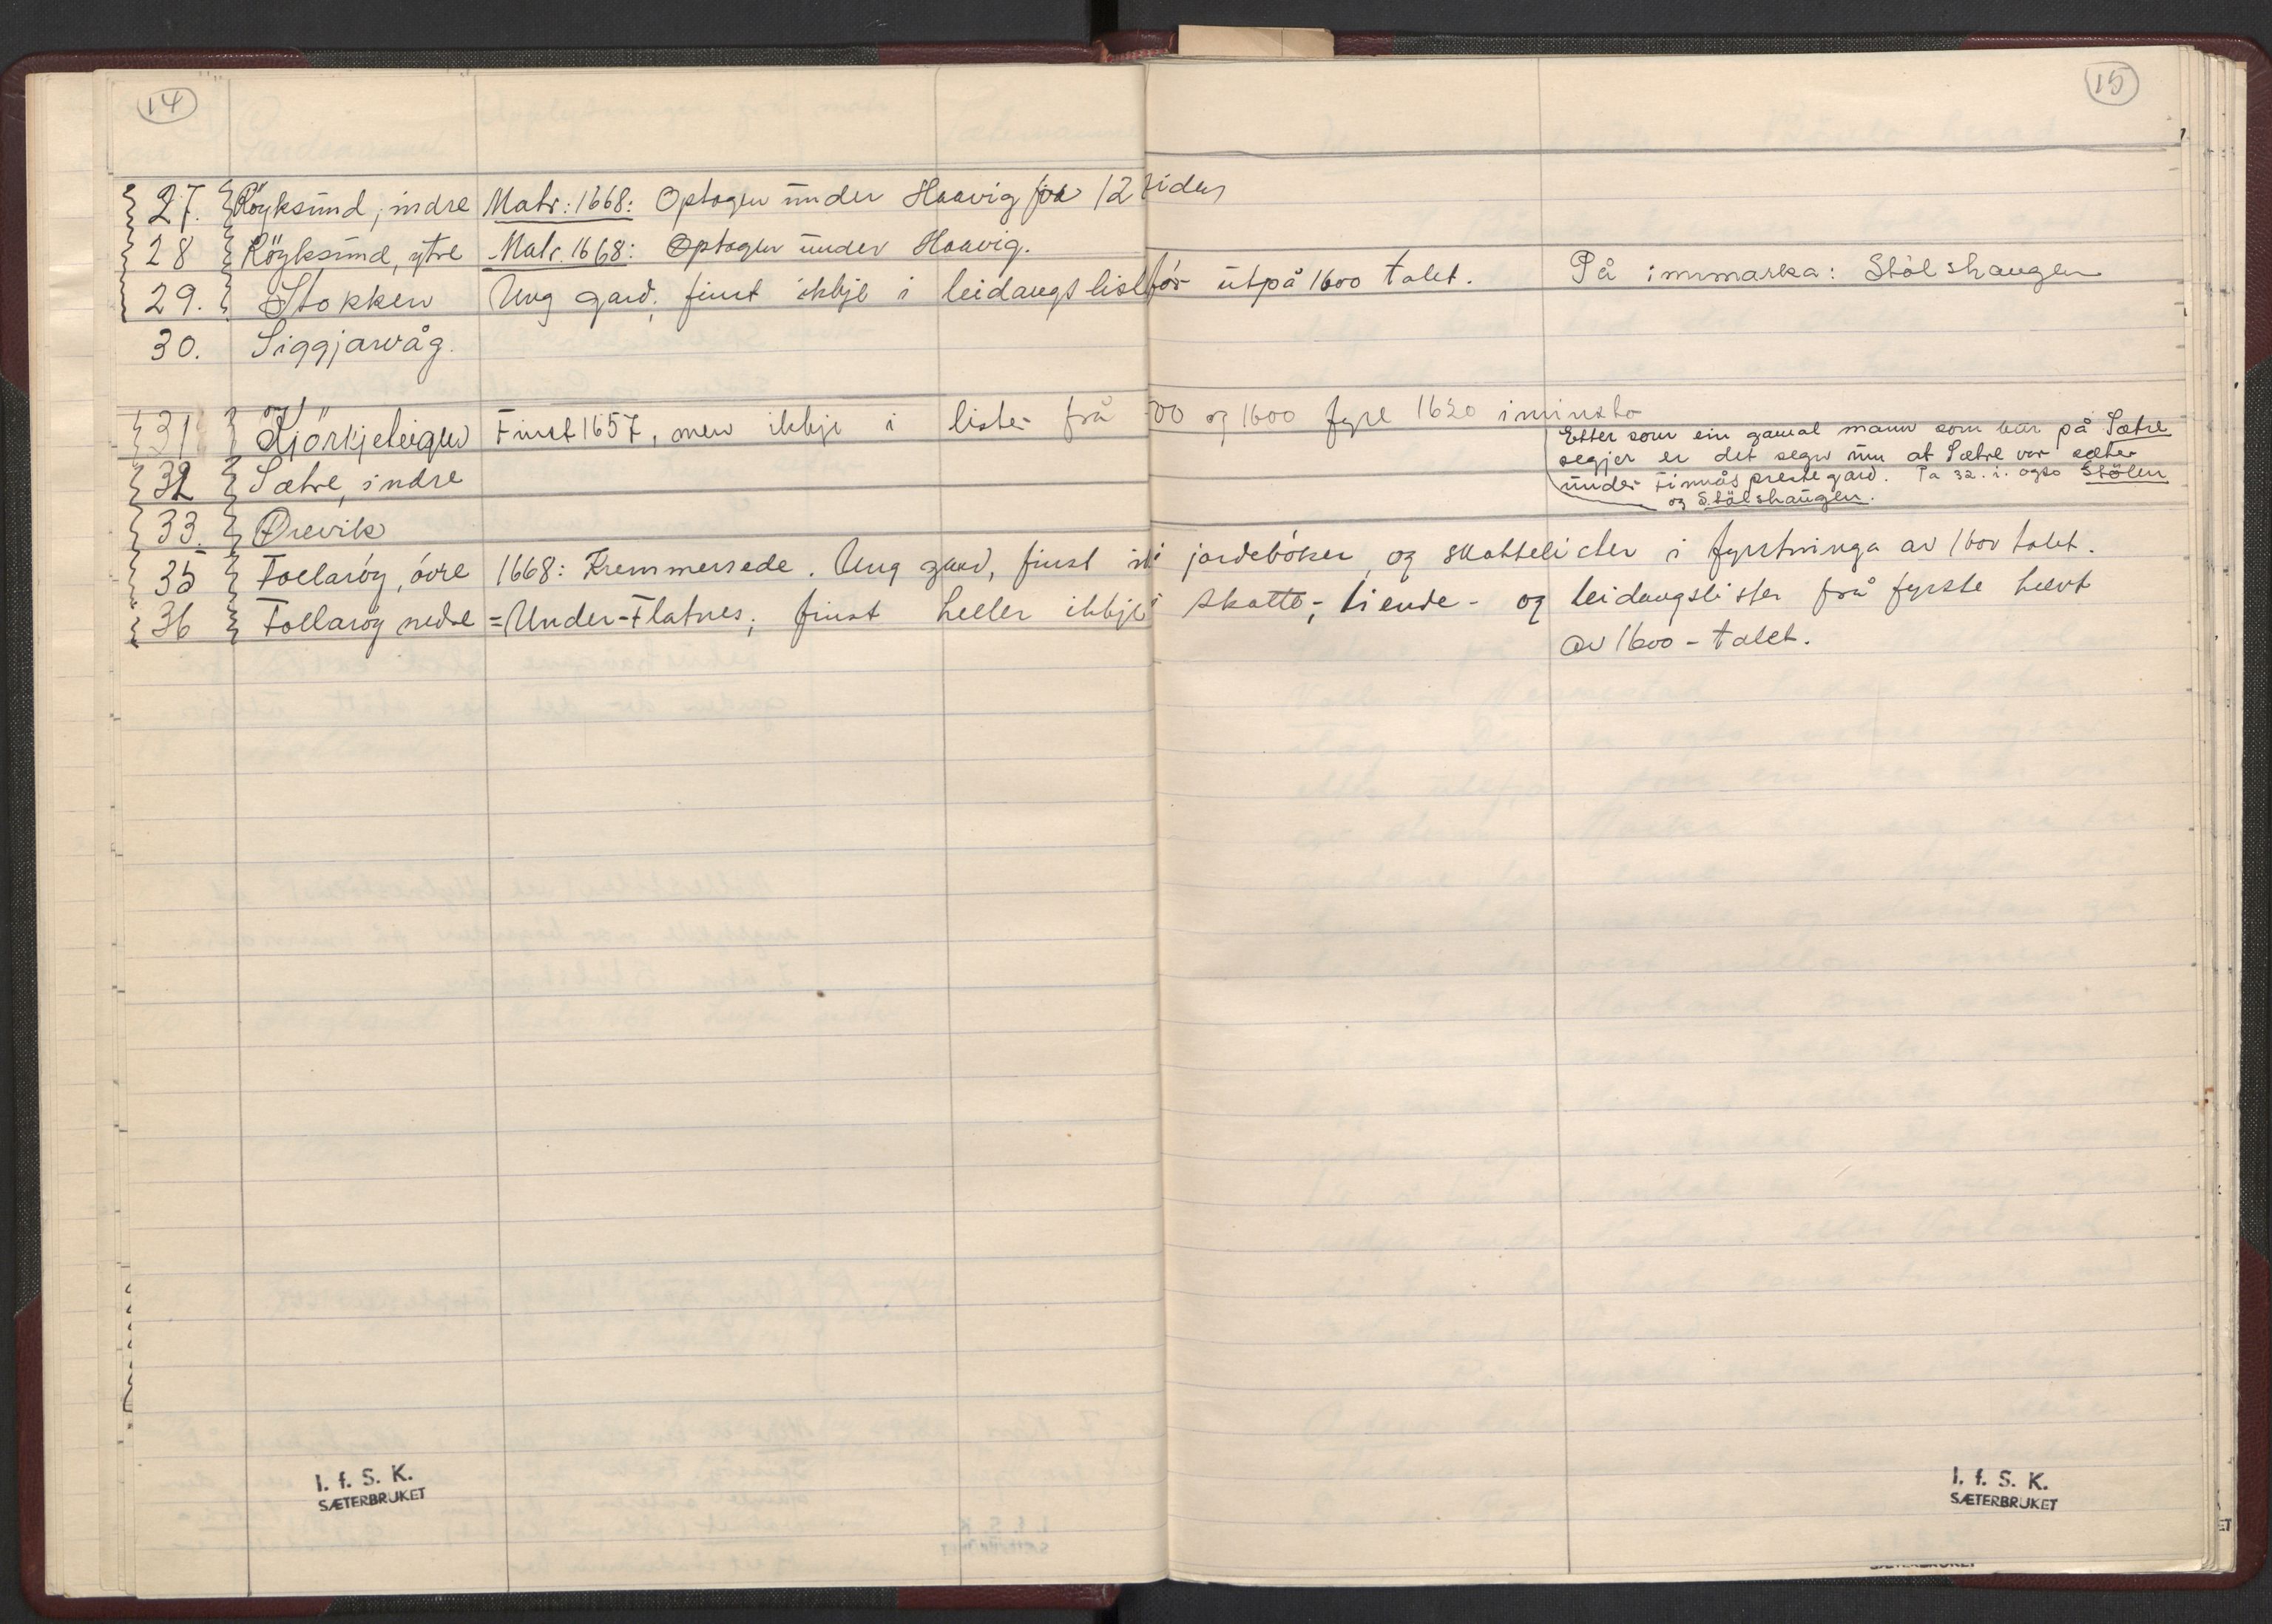 14
15
27. Röyksund, indre Matr: 1668: Optagen under Haavig for 12 tiden
28 Röyksund, ytre Matr. 1668: Optagen under Haavig.
29. Stokken Ung gard, finst ikkje i leidangslist för utpå 1600 talet. På innmarka: Stölshaugen
30. Siggjarvåg.
31 Kjörkjeteigen Finst 1657, men ikkje i lister frå 00 og 1600 fyre 1620 iminsto
Etter som ein gamal mann som bur på Sætre
segjer er det segn um at Sætre var sæter
under Finnås prestegard. På 32. i. også Stölen
og Stölshaugen.
32 Sætre, indre
33. Ørevik
35 Follaröy, övre 1668: Kremmersede. Ung gard, finst i jordeböker og skattelister i fyrstninga av 1600 talet.
36 Follaröy nedre = Under-Flatnes; finst heller ikkje i skatte-, tiende- og leidangslister frå fyrste halvt
av 1600-talet.
I. f. S. K.
SÆTERBRUKET
I. f. S. K.
SÆTERBRUKET